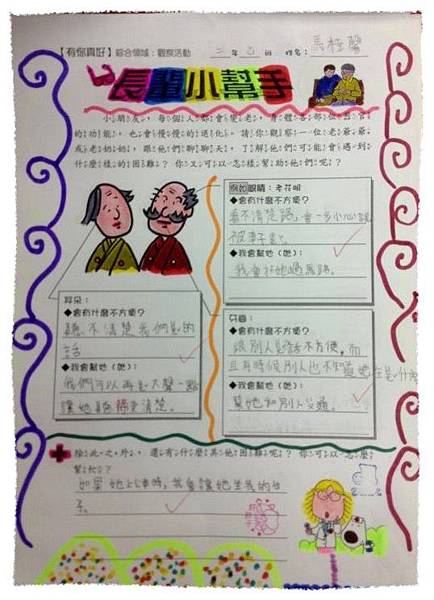 【有你真好】綜合領域：觀察活動 二年 班 姓名：
長輩小幫手
小朋友，每個人都會變老，身體各部位器官
的功能，也會慢慢的退化。請你觀察一位老爺爺
或老奶奶，跟他們聊聊天，了解他們可能會遇到
什麼樣的困難？你又可以怎樣幫助他們呢？
例如眼睛：老花眼
◆會有什麼不方便？
看不清楚路，會一步小心就
被車子撞
◆我會幫他(她)：
我會扶她過馬路。
耳朵：
◆會有什麼不方便？
聽不清楚我們說的
話
◆我會幫他(她)：
我們可以再說大聲一點
讓她聽得更清楚。
牙齒：
◆會有什麼不方便？
跟別人說話不方便，而
且有時候別人也不知道她在說什麼
◆我會幫他(她)：
幫她和別人交通。
除此之外，還有什麼其他困難呢？你可以怎麼
幫忙？
如果她上公車時，我會讓她坐我的位
子。